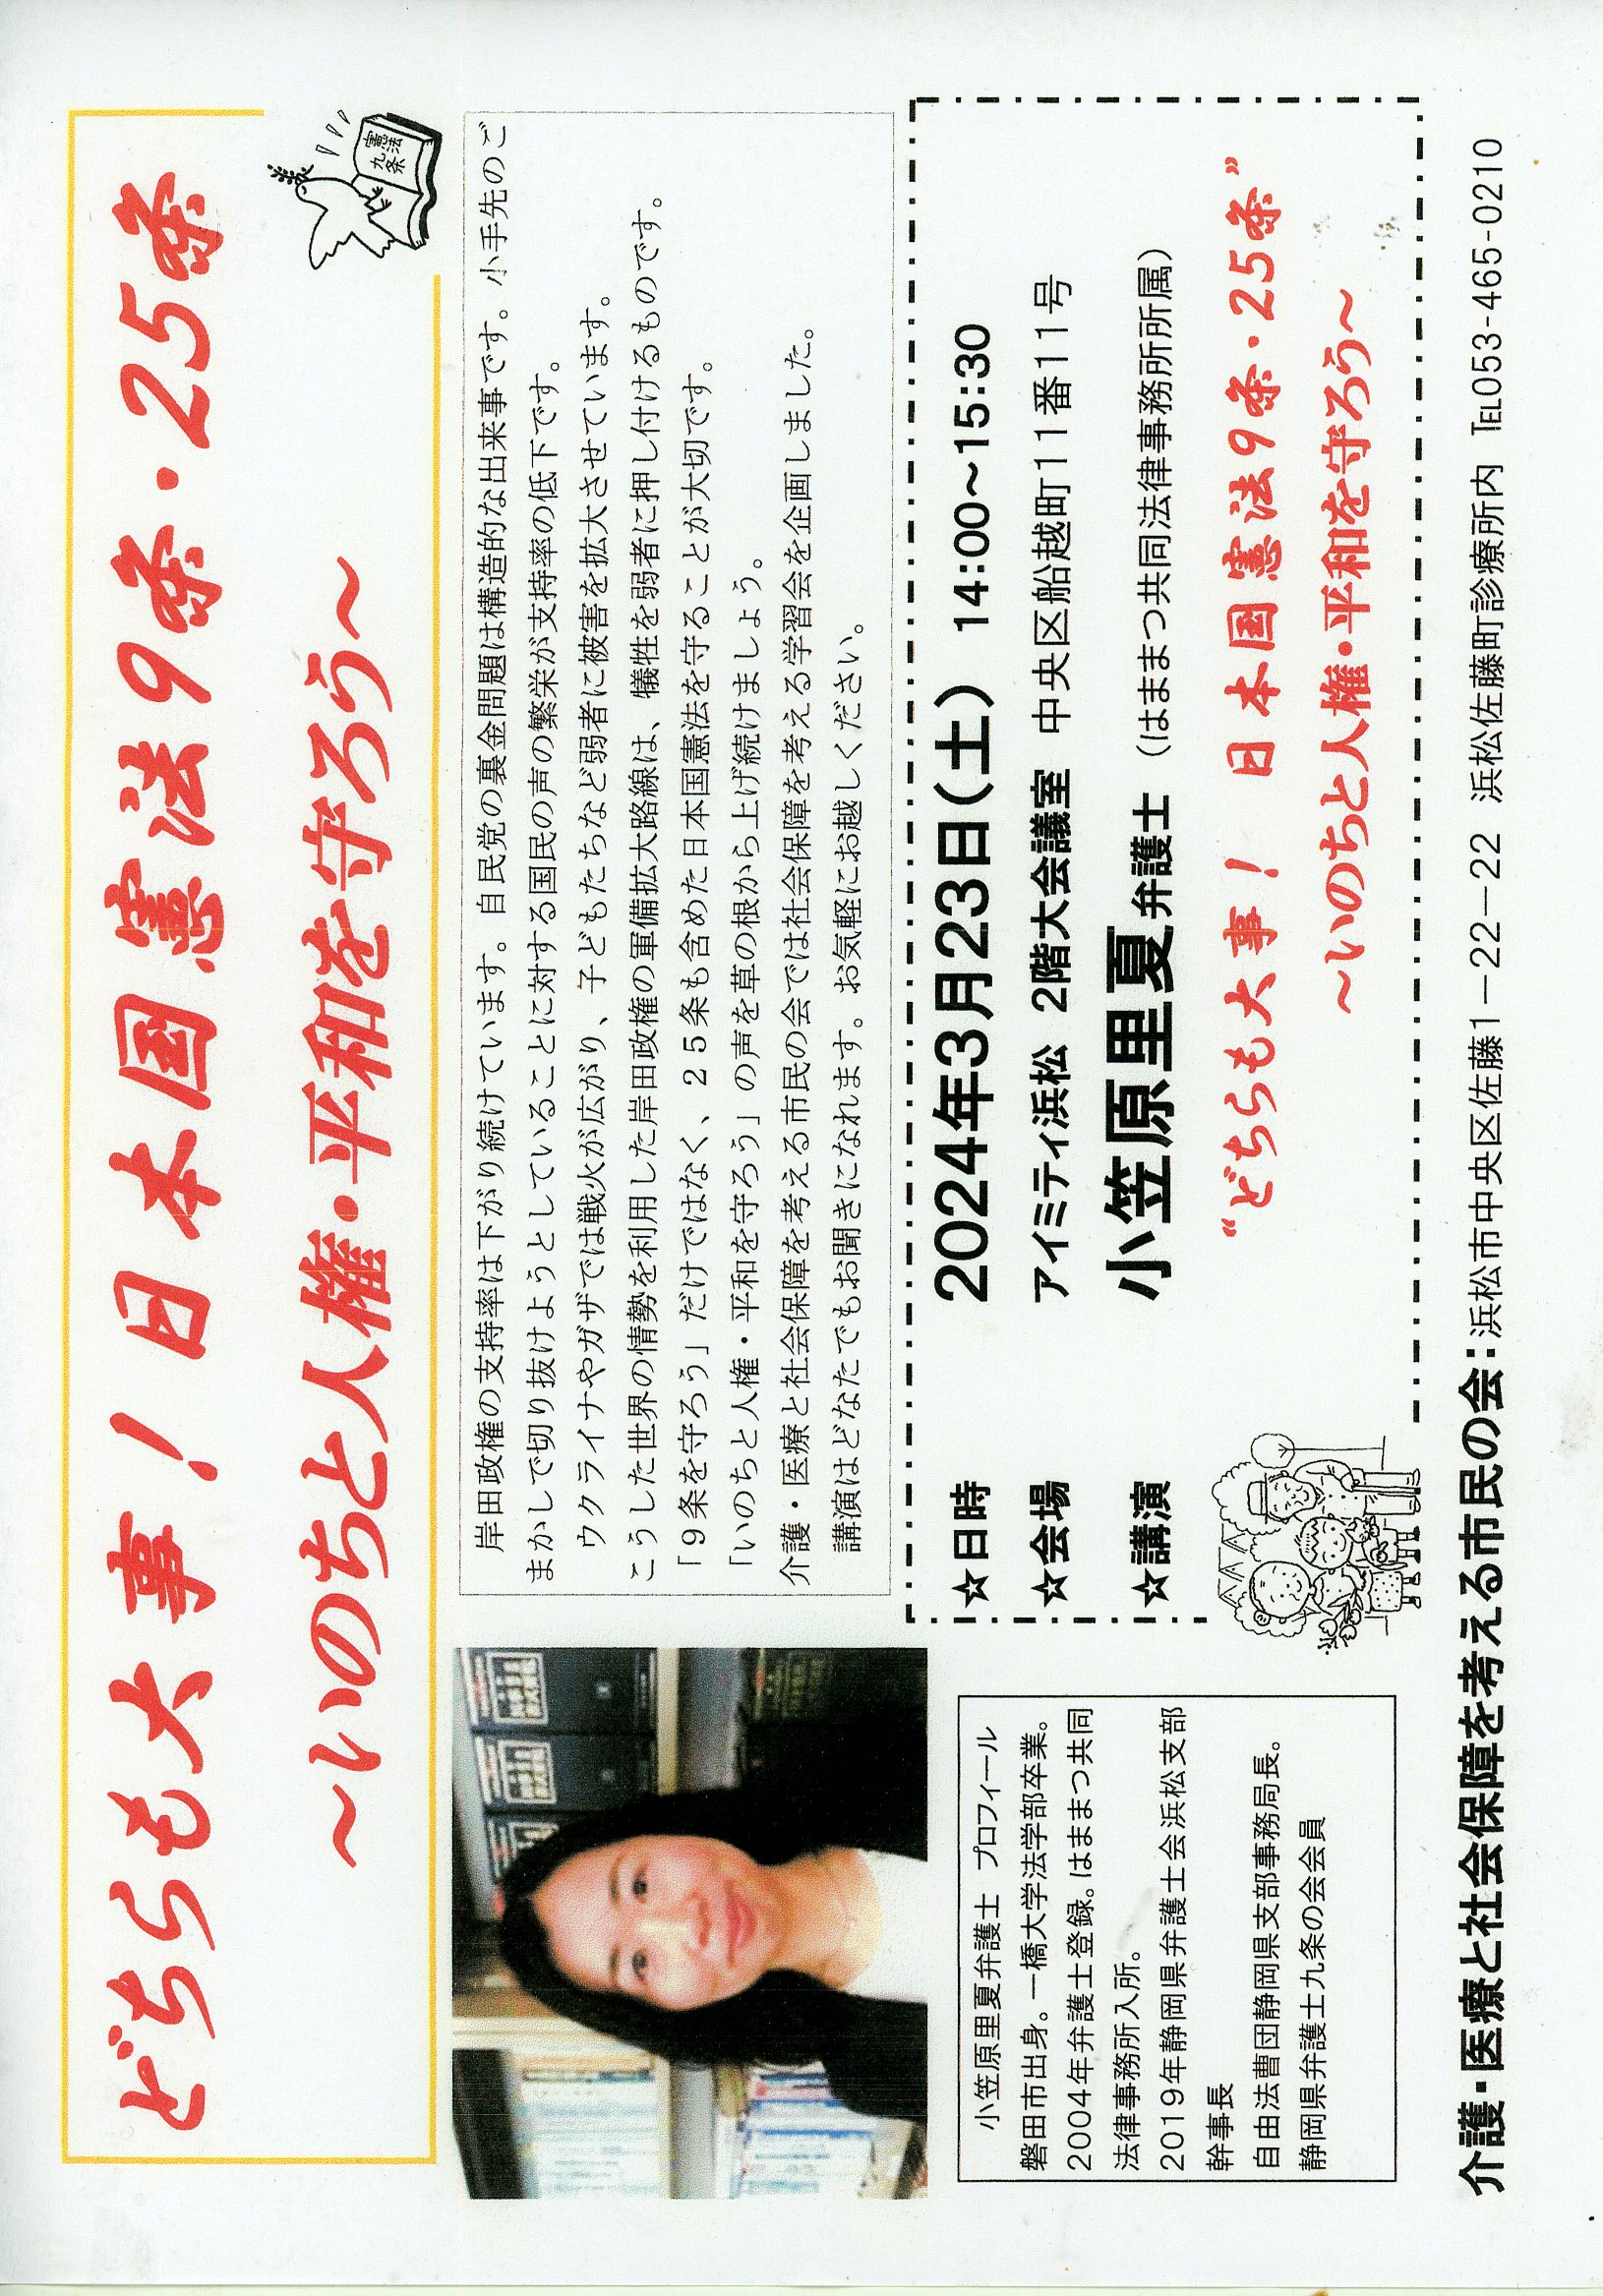 どちらも大事！日本国憲法9条・25条
～いのちと人権・平和を守ろう～
憲法
九条
岸田政権の支持率は下がり続けています。自民党の裏金問題は構造的な出来事です。小手先のご
まかしで切り抜けようとしていることに対する国民の声の繁栄が支持率の低下です。
ウクライナやガザでは戦火が広がり、子どもたちなど弱者に被害を拡大させています。
こうした世界の情勢を利用した岸田政権の軍備拡大路線は、犠牲を弱者に押し付けるものです。
「９条を守ろう」だけではなく、２５条も含めた日本国憲法を守ることが大切です。
「いのちと人権・平和を守ろう」の声を草の根から上げ続けましょう。
介護・医療と社会保障を考える市民の会では社会保障を考える学習会を企画しました。
講演はどなたでもお聞きになれます。お気軽にお越しください。
☆日時 2024年3月23日（土） 14:00～15:30
☆会場 アイミティ浜松 2階大会議室 中央区船越町11番11号
☆講演 小笠原里夏弁護士（はままつ共同法律事務所所属）
“どちらも大事！ 日本国憲法9条・25条”
～いのちと人権・平和を守ろう～
小笠原里夏弁護士 プロフィール
磐田市出身。一橋大学法学部卒業。
2004年弁護士登録。はままつ共同
法律事務所入所。
2019年静岡県弁護士会浜松支部
幹事長
自由法曹団静岡県支部事務局長。
静岡県弁護士九条の会会員
介護・医療と社会保障を考える市民の会：浜松市中央区佐藤1－22－22 浜松佐藤町診療所内 TEL053-465-0210